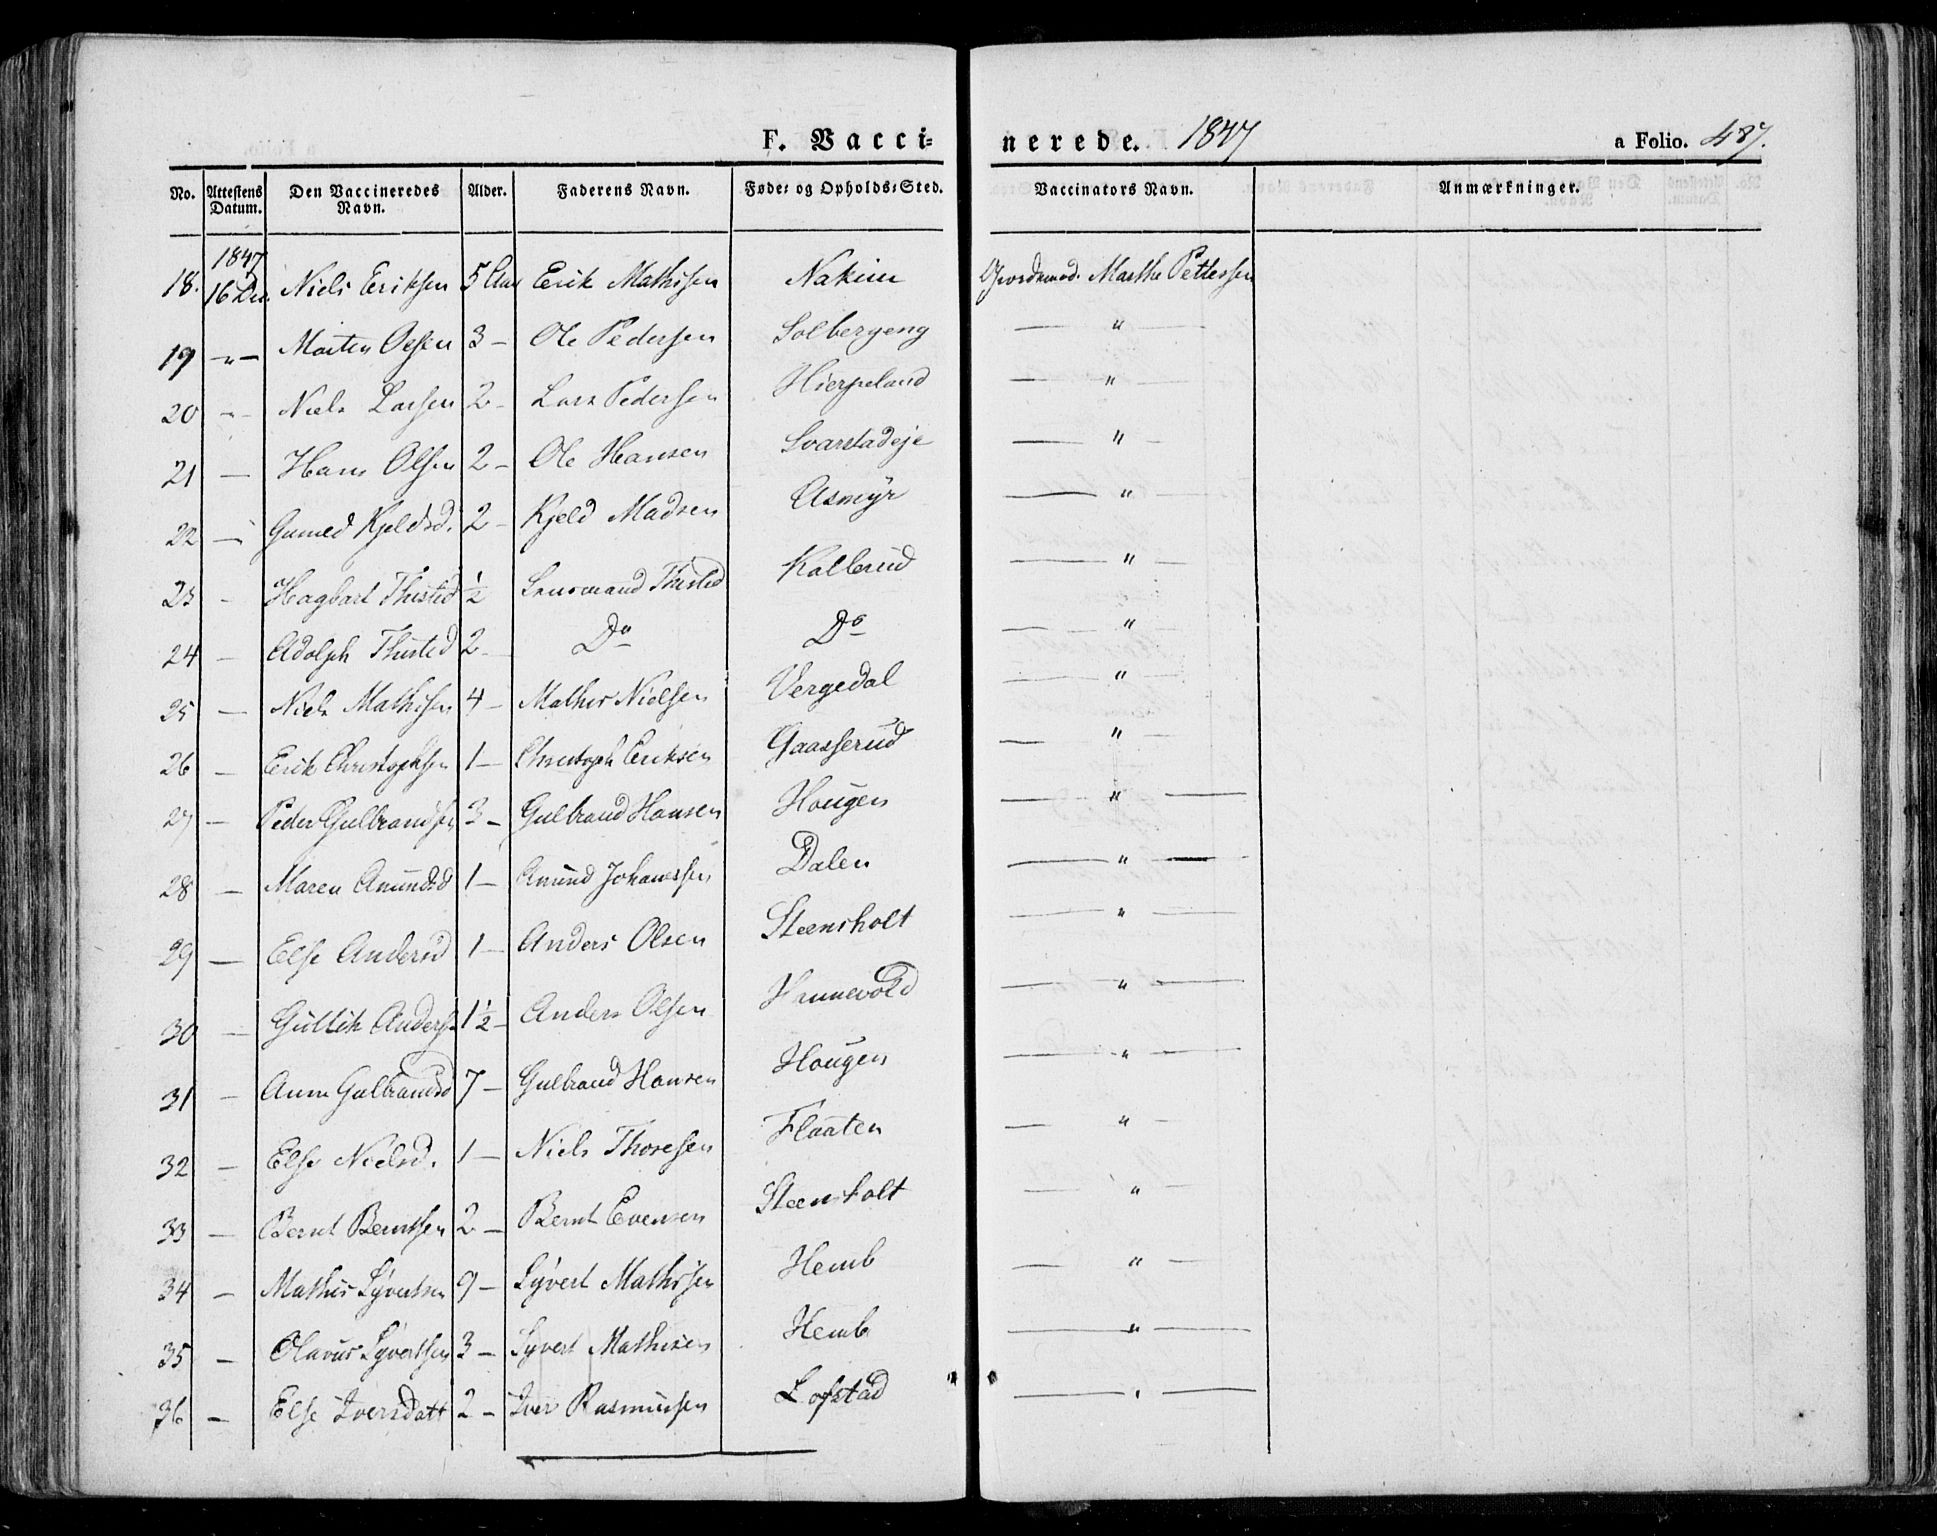 F. Vaccinerede. 1847 a Folio. 487.
No. Attestens Datum. Den Vaccineredes Navn. Alder. Faderens Navn. Føde- og Opholds-Sted. Vaccinators Navn. Anmærkninger.
1847
18. 16 Niels Eriksen 5 Erik Mathisen Nakim Marthe Pettersen
19 -„- Morten Oesen 3 - Ole Pedersen Solbergeng — „ —
20 -„- Niels Larsen 2 - Lars Pedersen Hierpeland — „ —
21 — Hans Olsen 2 - Ole Hansen Svarstadeje — „ —
22 — Kjeldsd. 2 - Kjeld Madsen Asmyr — „ —
23 - Hagbart Thisted ½ Lensmand Thisted Kollerud — „ —
24 - Adolph Thisted 2 - Do Do — „ —
25 — Niels Mathisen 4 - Mathis Nielsen Vergedal — „ —
26 — Erik Christophsen 1 - Christoph Eriksen Gaasserud — „ —
27 — Peder Gulbrandsen 3 - Gulbrand Hansen Hougen — „ —
28 — Maren Amundsd 1 - Amund Johanssen Dalen — „ —
29 — Else Andersd 1 - Anders Olsen Steensholt — „ —
30 — Gullik Anders 1½ - Anders Olsen Hannevold — „ —
31 - Anne Gulbrandsd 7 - Gulbrand Hansen Hougen — „ —
32 - Else Nielsd. 1 - Niels Thoresen Flaaten — „ —
33 - Bernt Berntsen 2 - Bernt Evensen Steensholt — „ —
34 - Mathis Syvertsen 9 - Syvert Mathisen Hemb — „ —
35 - Olavus Syvertsen 3 - Syvert Mathisen Hemb — „ —
36 - Else Iversdatt 2 - Iver Rasmussen Lofstad — „ —